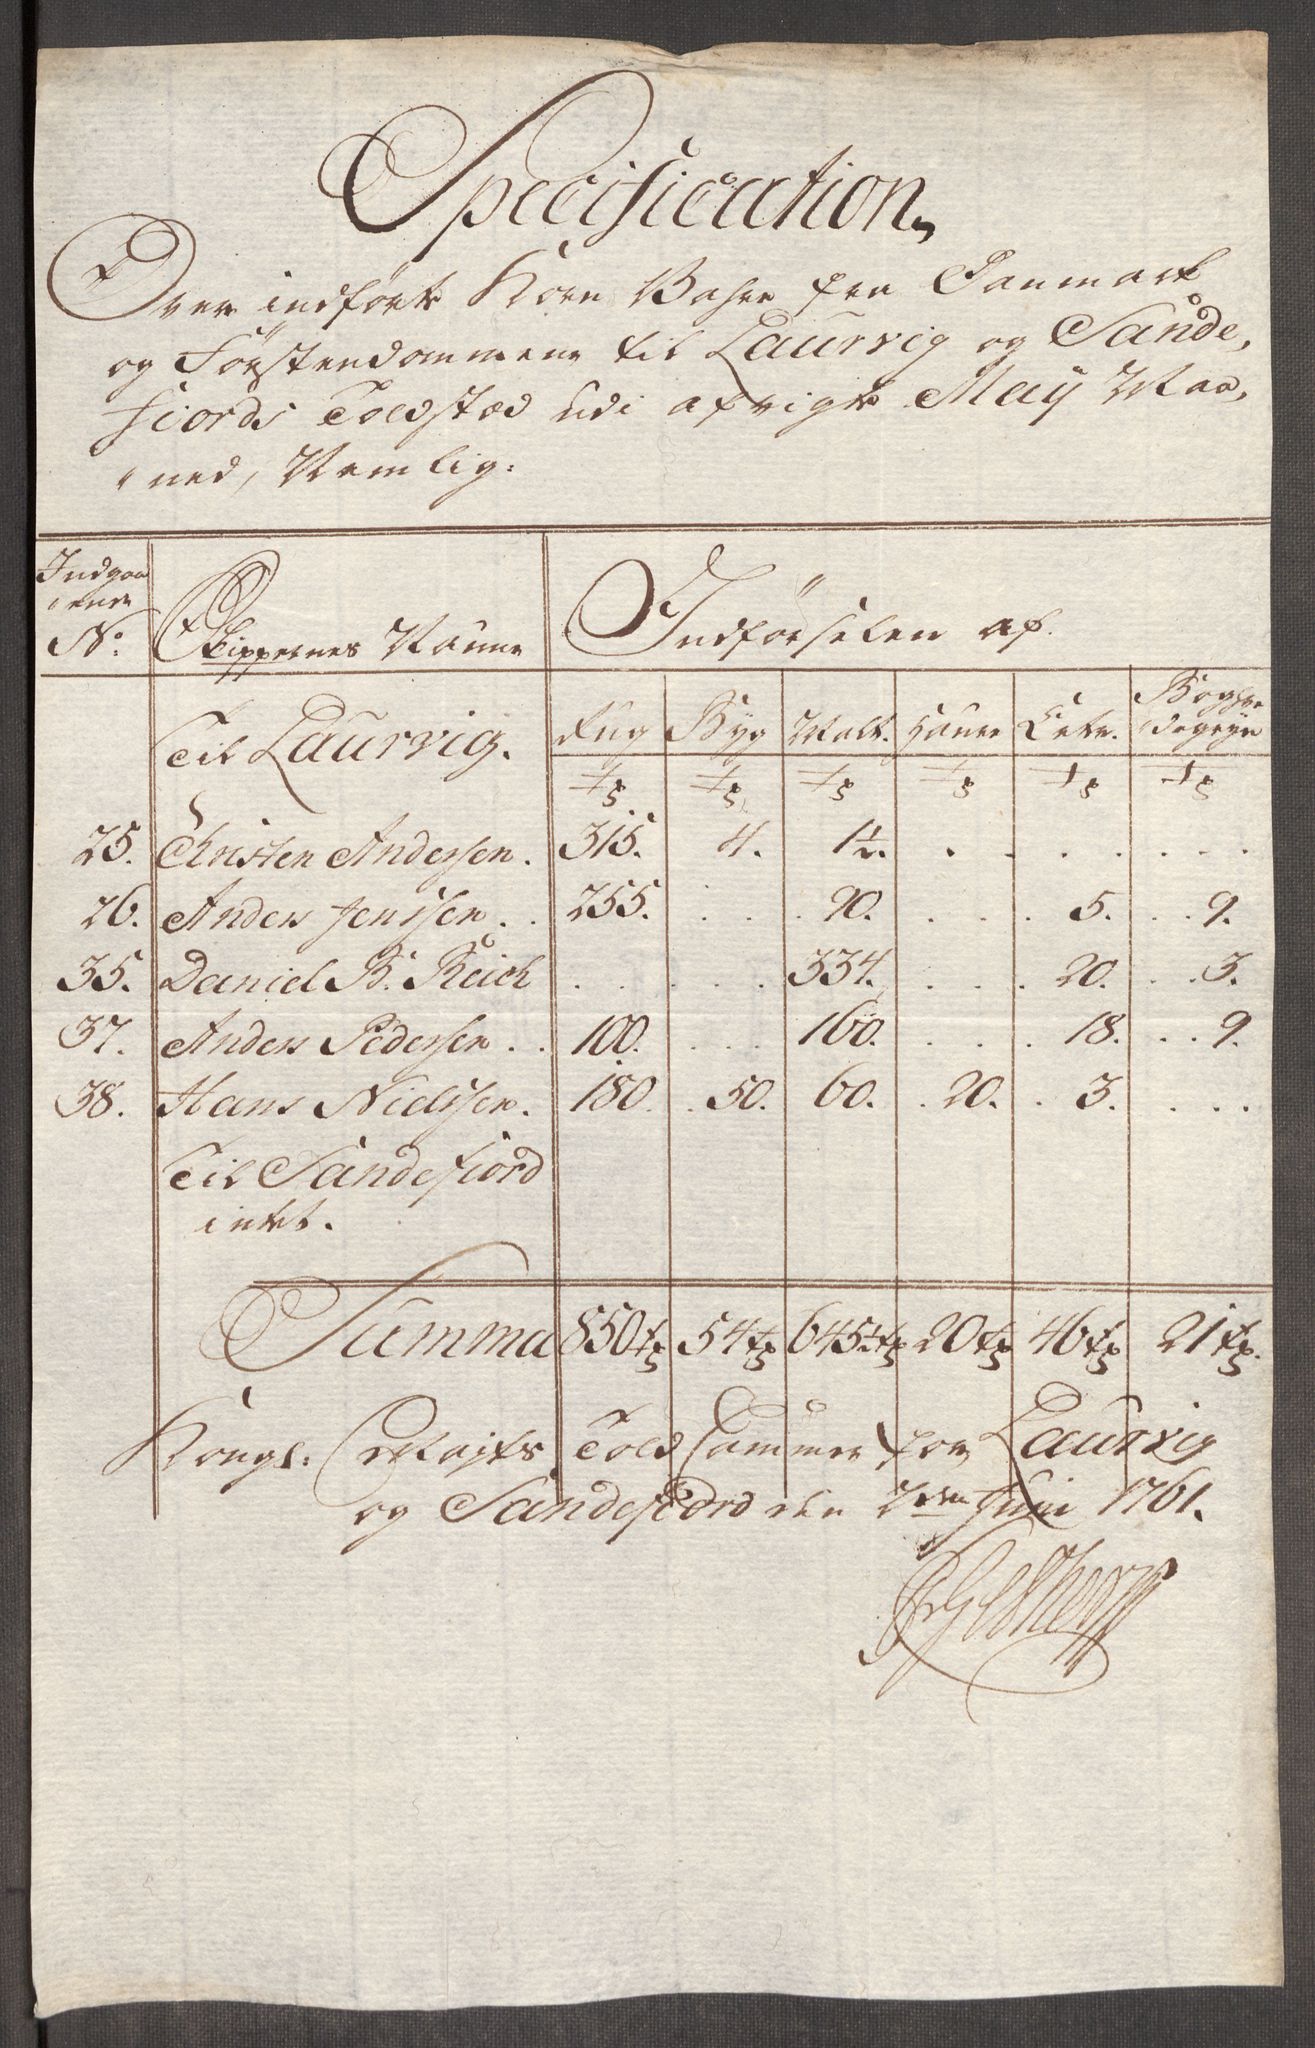 Specification,
Over indførte Korn Vahre fra Danmark
og Förstendommene til Laurvig og Sande,
fiords Toldstæd udi afvigte Maij Maa,
ned, Nemlig:
Indgaa
ende
No: Skippernes Nafne Indförselen af.
Til Laurvig. Rug Byg Malt. Haure Erter. Boghve
degryn
Tr Tr Tr Tr Tr Tr
25. Christen Andersen. 315. 4. 1½. . . . . . .
26. Anders Jenssen. . 255. . . . 90. . . . 5. . . 9.
35. Daniel B. Reich . . . . . 334. . . . 20. . . 3.
37. Anders Pedersen. . 100. . . . 160. . . . 18. . . 9.
38. Hans Nielssen. 180. . 50. 60. . 20. . 3. . . .
Til Sandefiord
intet.
Summa 850 tr 54 tr 645½ tr 20 tr 46 tr 21 tr.
Kongl: Mayts Told Cammer for Laurvig
og Sandefiord den 2den Juni 1761.